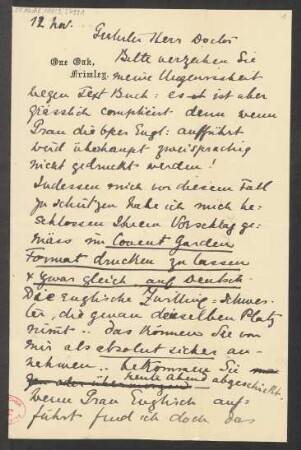 12 Nov.
Geehrter Herr Doctor
One Oak,
Frimley.
Bitte verzeihen Sie
meine Ungewissheit
wegen Text Buch: es ist aber
grässlich compliciert denn wenn
Prag die Oper Engl: aufführt
wird überhaupt zweisprachig
nicht gedruckt werden!
Indessen mich vor diesem Fall
zu schützen habe ich mich be-
schlossen Ihrem Vorschlag ge-
mäss im Covent Garden
Format drucken zu lassen
& zwar gleich, auf Deutsch.
Die Englische Zwilling-Schwes-
ter, die genau denselben Platz
nimmt .. das können Sie von
mir als absolut sicher an-
nehmen .. bekommen Sie
heute Abend abgeschickt.
Wenn Prag Englisch auf-
führt find ich doch das